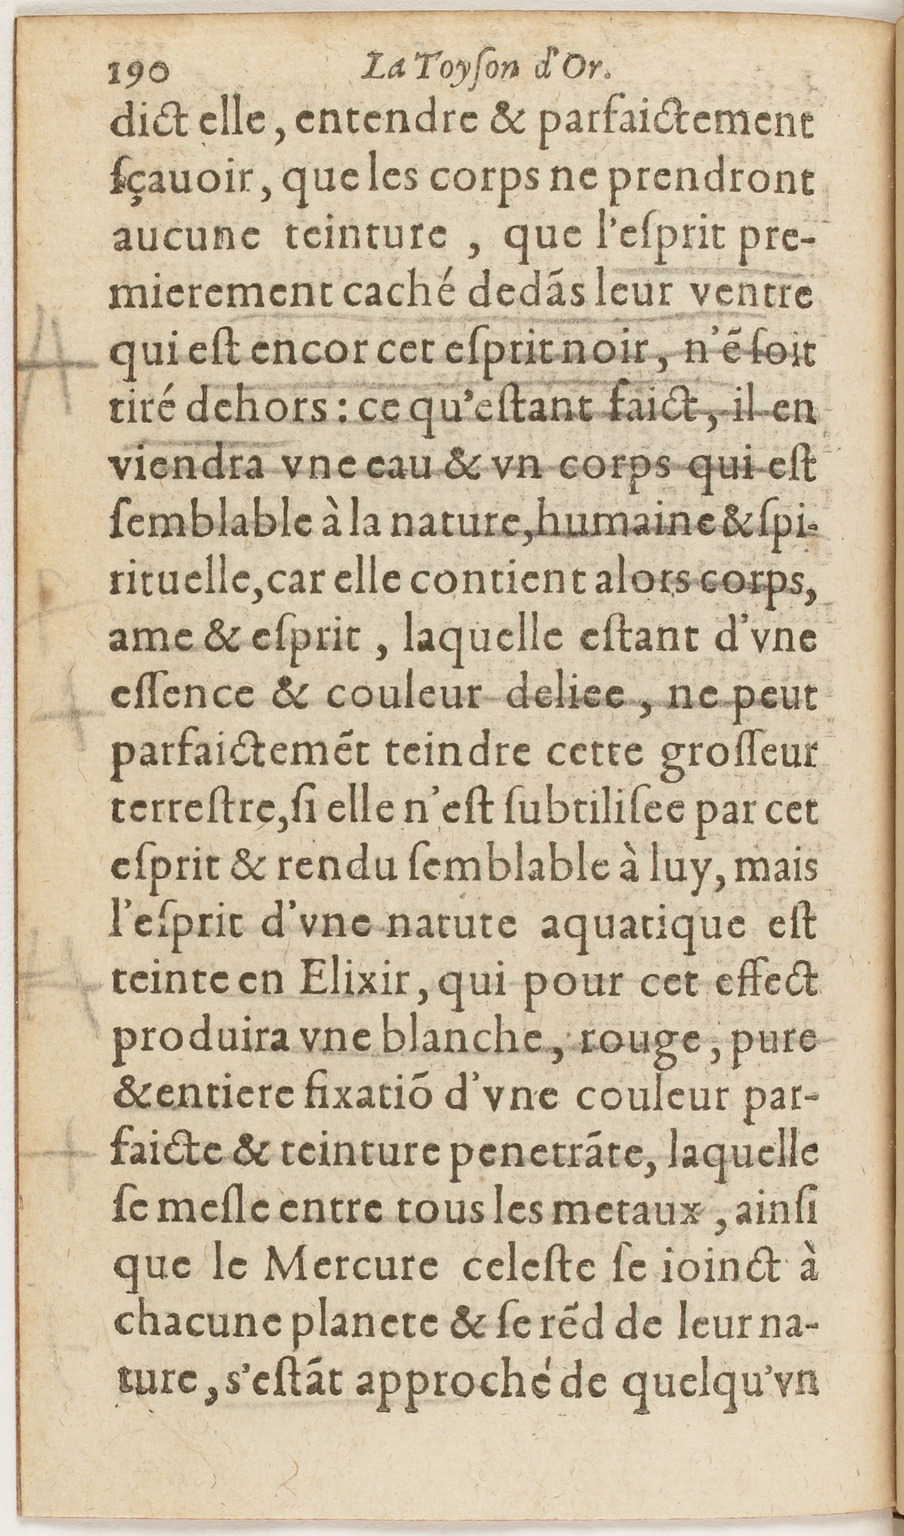 190 La Toyſon d'Or.
dict elle, entendre & parfaictement
ſçauoir, que les corps ne prendront
aucune teinture , que l'eſprit pre-
mierement caché dedãs leur ventre
qui eſt encor cet eſprit noir, n'ẽ ſoit
tiré dehors : ce qu'eſtant faict, il en
viendra vne eau & vn corps qui eſt
ſemblable à la nature, humaine & ſpi-
rituelle, car elle contient alors corps,
ame & eſprit , laquelle eſtant d'vne
eſſence & couleur deliee , ne peut
parfaictemẽt teindre cette groſſeur
terreſtre, ſi elle n'eſt ſubtiliſee par cet
eſprit & rendu ſemblable à luy, mais
l'eſprit d'vne natute aquatique eſt
teinte en Elixir, qui pour cet effect
produira vne blanche, rouge, pure
& entiere fixatiõ d'vne couleur par-
faicte & teinture penetrãte, laquelle
ſe meſle entre tous les metaux , ainſi
que le Mercure celeſte ſe ioinct à
chacune planete & ſe rẽd de leur na-
ture, s'eſtãt approché de quelqu'vn